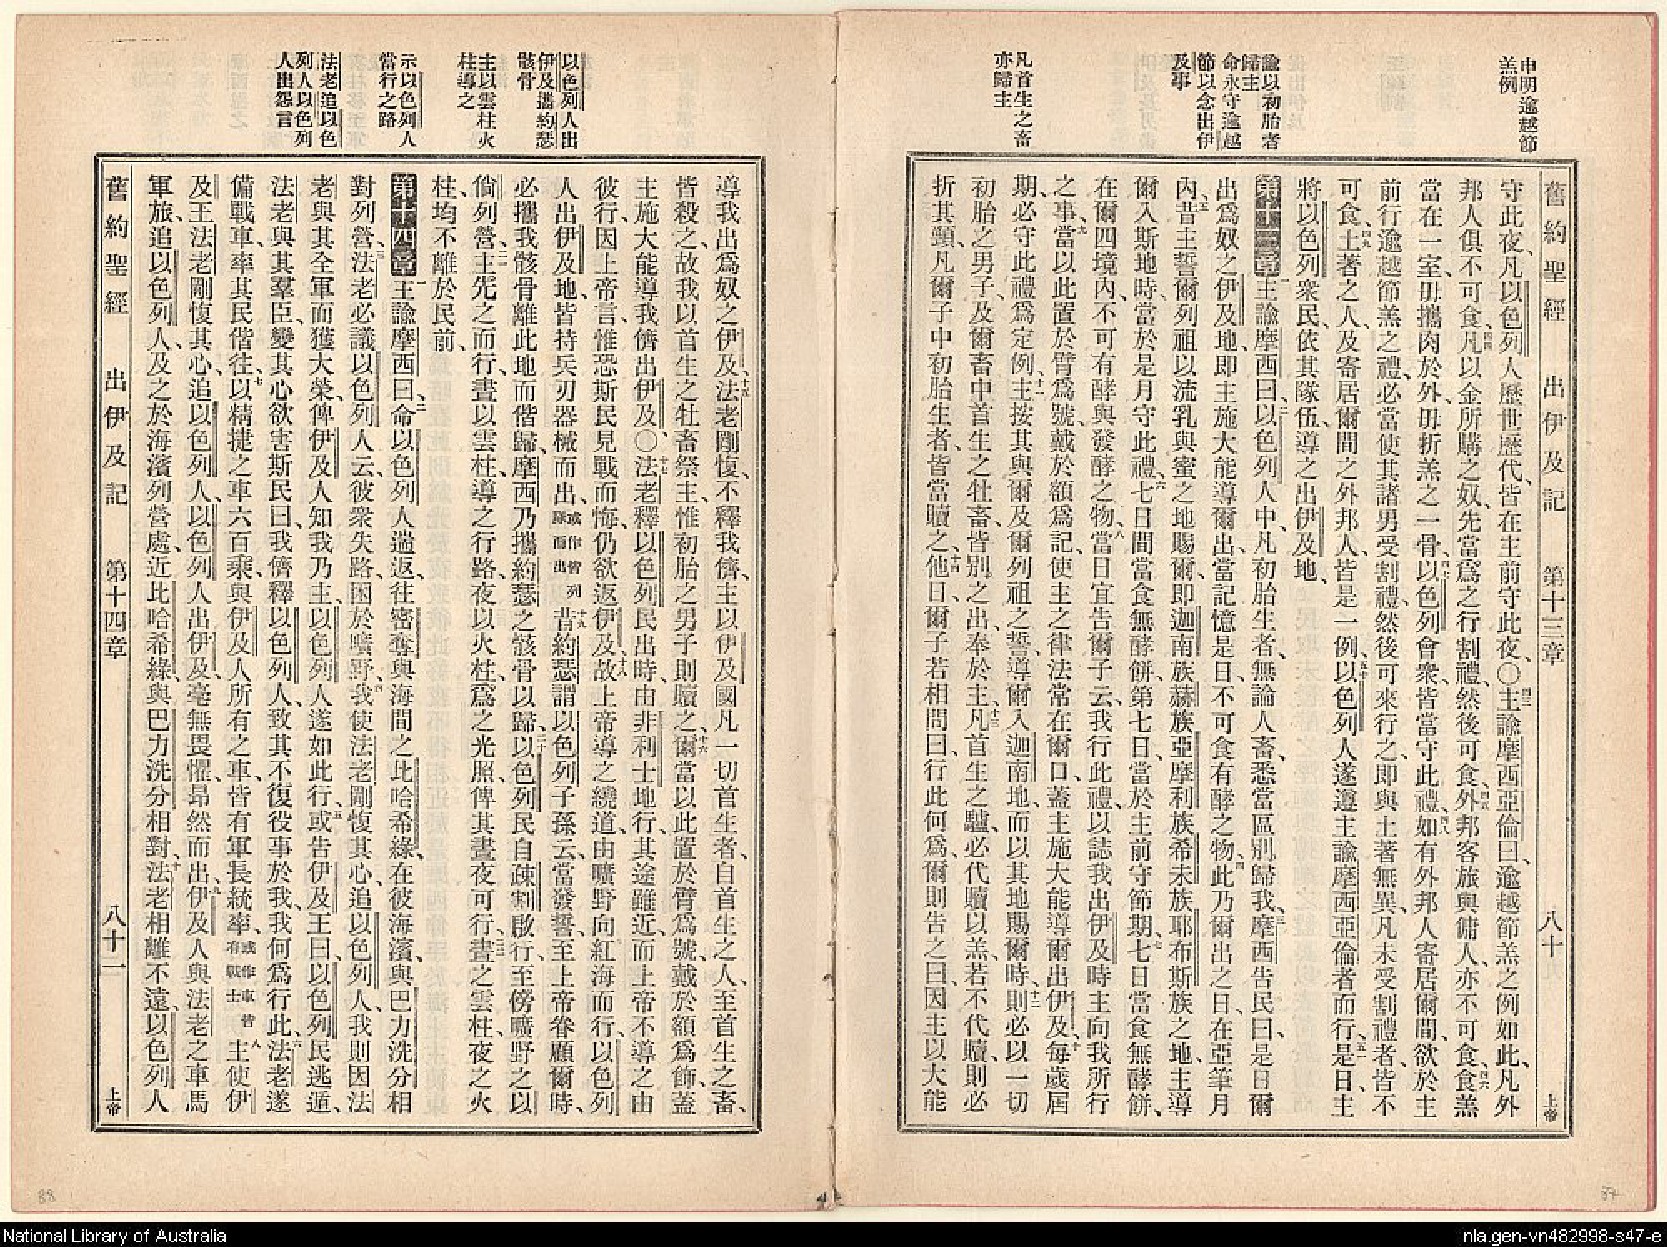 申明逾越節
羔例
諭以初胎者
歸主
命永守逾越
節以念出伊
及事
凡首生之畜
亦歸主
舊約聖經 出伊及記 第十三章 八十 上帝
守此夜、凡以色列人歷世歷代、皆在主前守此夜、〇主諭摩西亞倫曰、逾越節羔之例如此、凡外
邦人俱不可食、凡以金所購之奴、先當爲之行割禮、然後可食、外邦客旅與傭人亦不可食、食羔
當在一室、毋攜肉於外、毋折羔之一骨、以色列會衆皆當守此禮、如有外邦人寄居爾間、欲於主
前行逾越節羔之禮、必當使其諸男受割禮、然後可來行之、即與土著無異、凡未受割禮者、皆不
可食、土著之人、及寄居爾間之外邦人、皆是一例、以色列人遂遵主諭摩西亞倫者而行、是日、主
將以色列衆民、依其隊伍、導之出伊及地、
第十三章 主諭摩西曰、以色列人中、凡初胎生者、無論人畜、悉當區別歸我、摩西告民曰、是日爾
出爲奴之伊及地、即主施大能導爾出、當記憶是日、不可食有酵之物、此乃爾出之日、在亞筆月
內、昔主誓爾列祖、以流乳與蜜之地賜爾、即迦南族赫族亞摩利族希未族耶布斯族之地、主導
爾入斯地時、當於是月守此禮、七日間當食無酵餅、第七日、當於主前守節期、七日當食無酵餅、
在爾四境內、不可有酵與發酵之物、當日宜告爾子云、我行此禮、以誌我出伊及時主向我所行
之事、當以此置於臂爲號、戴於額爲記、使主之律法常在爾口、蓋主施大能導爾出伊及、每歲屆
期、必守此禮爲定例、主按其與爾及爾列祖之誓、導爾入迦南地、而以其地賜爾時、則必以一切
初胎之男子、及爾畜中首生之牡畜、皆別之出、奉於主、凡首生之驢、必代贖以羔、若不代贖、則必
折其頸、凡爾子中初胎生者、皆當贖之、他日爾子若相問曰、行此何爲、爾則告之曰、因主以大能
以色列人出
伊及攜約瑟
骸骨
主以雲柱火
柱導之
示以色列人
當行之路
法老追以色
列人以色列
人出怨言
導我出爲奴之伊及、法老剛愎、不釋我儕、主以伊及國凡一切首生者、自首生之人、至首生之畜、
皆殺之、故我以首生之牡畜祭主、惟初胎之男子則贖之、爾當以此置於臂爲號、戴於額爲飾、蓋
主施大能導我儕出伊及、〇法老釋以色列民出時、由非利士地行、其途雖近、而上帝不導之由
彼行、因上帝言、惟恐斯民見戰而悔、仍欲返伊及、故上帝導之繞道、由曠野向紅海而行、以色列
人出伊及地、皆持兵刃器械而出、或作皆列隊而出 昔約瑟謂以色列子孫云、當發誓、至上帝眷顧爾時、
必攜我骸骨離此地而偕歸、摩西乃攜約瑟之骸骨以歸、以色列民自疎割啟行、至傍曠野之以
倘列營、主先之而行、晝以雲柱、導之行路、夜以火柱、爲之光照、俾其晝夜可行、晝之雲柱、夜之火
柱、均不離於民前、
第十四章 主諭摩西曰、命以色列人遄返、往密奪與海間之比哈希綠、在彼海濱、與巴力洗分相
對列營、法老必議以色列人云、彼衆失路、困於曠野、我使法老剛愎其心、追以色列人、我則因法
老與其全軍而獲大榮、俾伊及人知我乃主、以色列人遂如此行、或告伊及王曰、以色列民逃遁、
法老與其羣臣、變其心、欲害斯民、曰、我儕釋以色列人、致其不復役事於我、我何爲行此、法老遂
備戰車、率其民偕往、以精捷之車六百乘、與伊及人所有之車、皆有軍長統率、或作車皆有戰士 主使伊
及王法老剛愎其心、追以色列人、以色列人出伊及、毫無畏懼、昂然而出、伊及人與法老之車馬
軍旅、追以色列人、及之於海濱列營處、近比哈希綠、與巴力洗分相對、法老相離不遠、以色列人
舊約聖經 出伊及記 第十四章 八十一 上帝
88
87
National Library of Australia
nla.gen-vn482998-s47-e